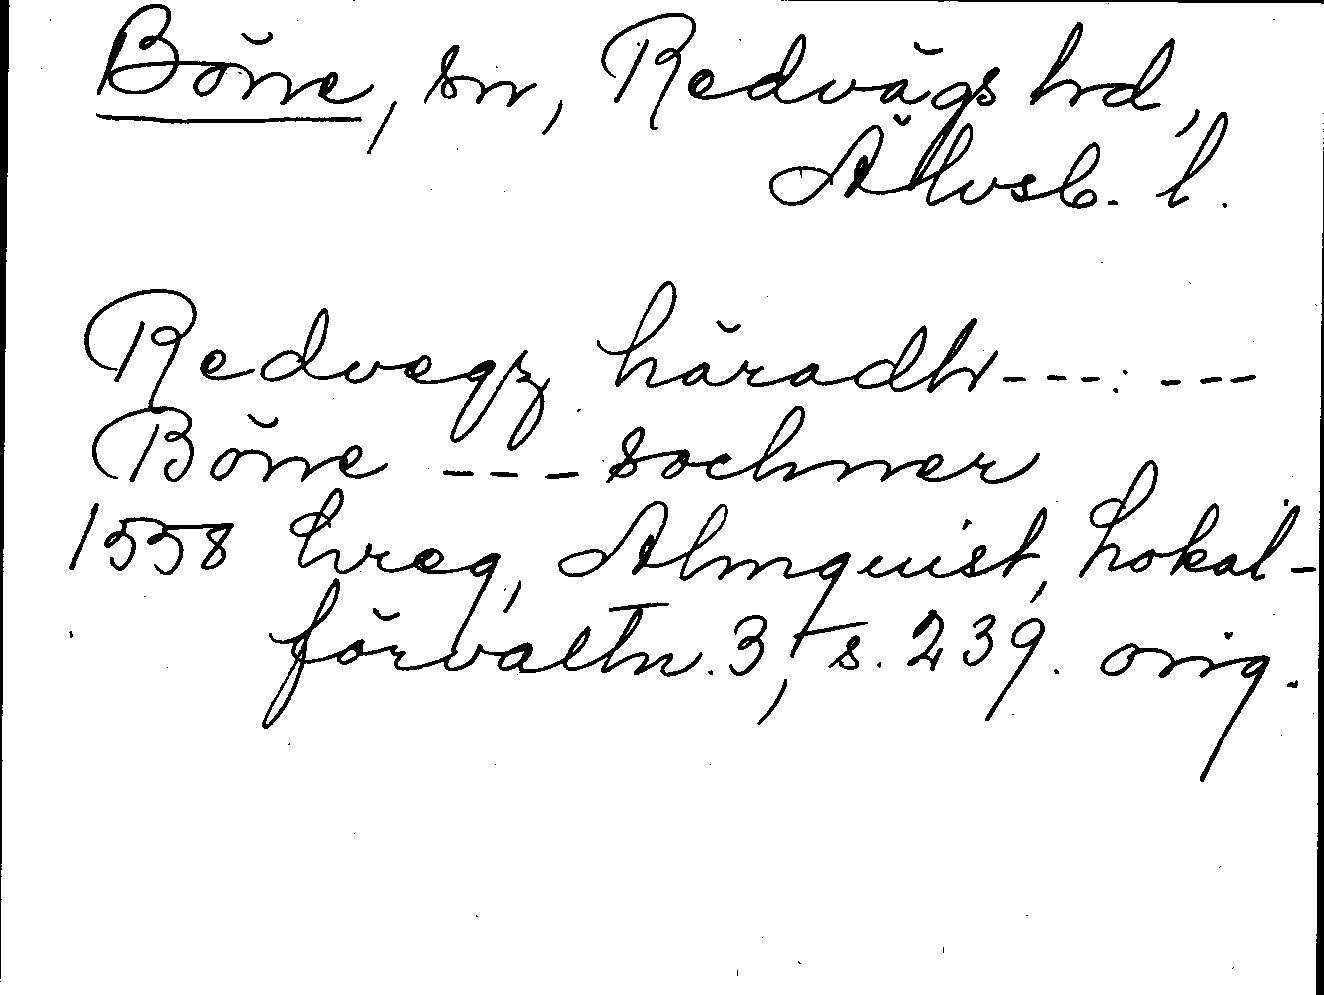 Böne, sn, Redvägs hd,
Älvsb. l.
Redvegz häradh---:---
Böne --- sochner
1558 hreg, Almquist, Lokal-
förvaltn. 3, s. 239. orig.